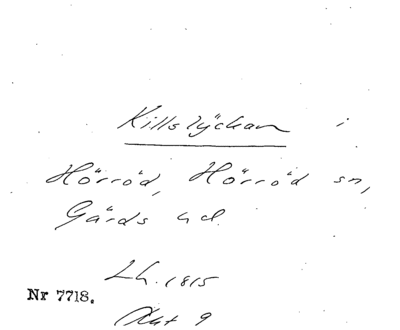 Killslyckan i
Hörröd, Hörröd sn,
Gärds hd.
Lh. 1815
Nr 7718.
Akt 9